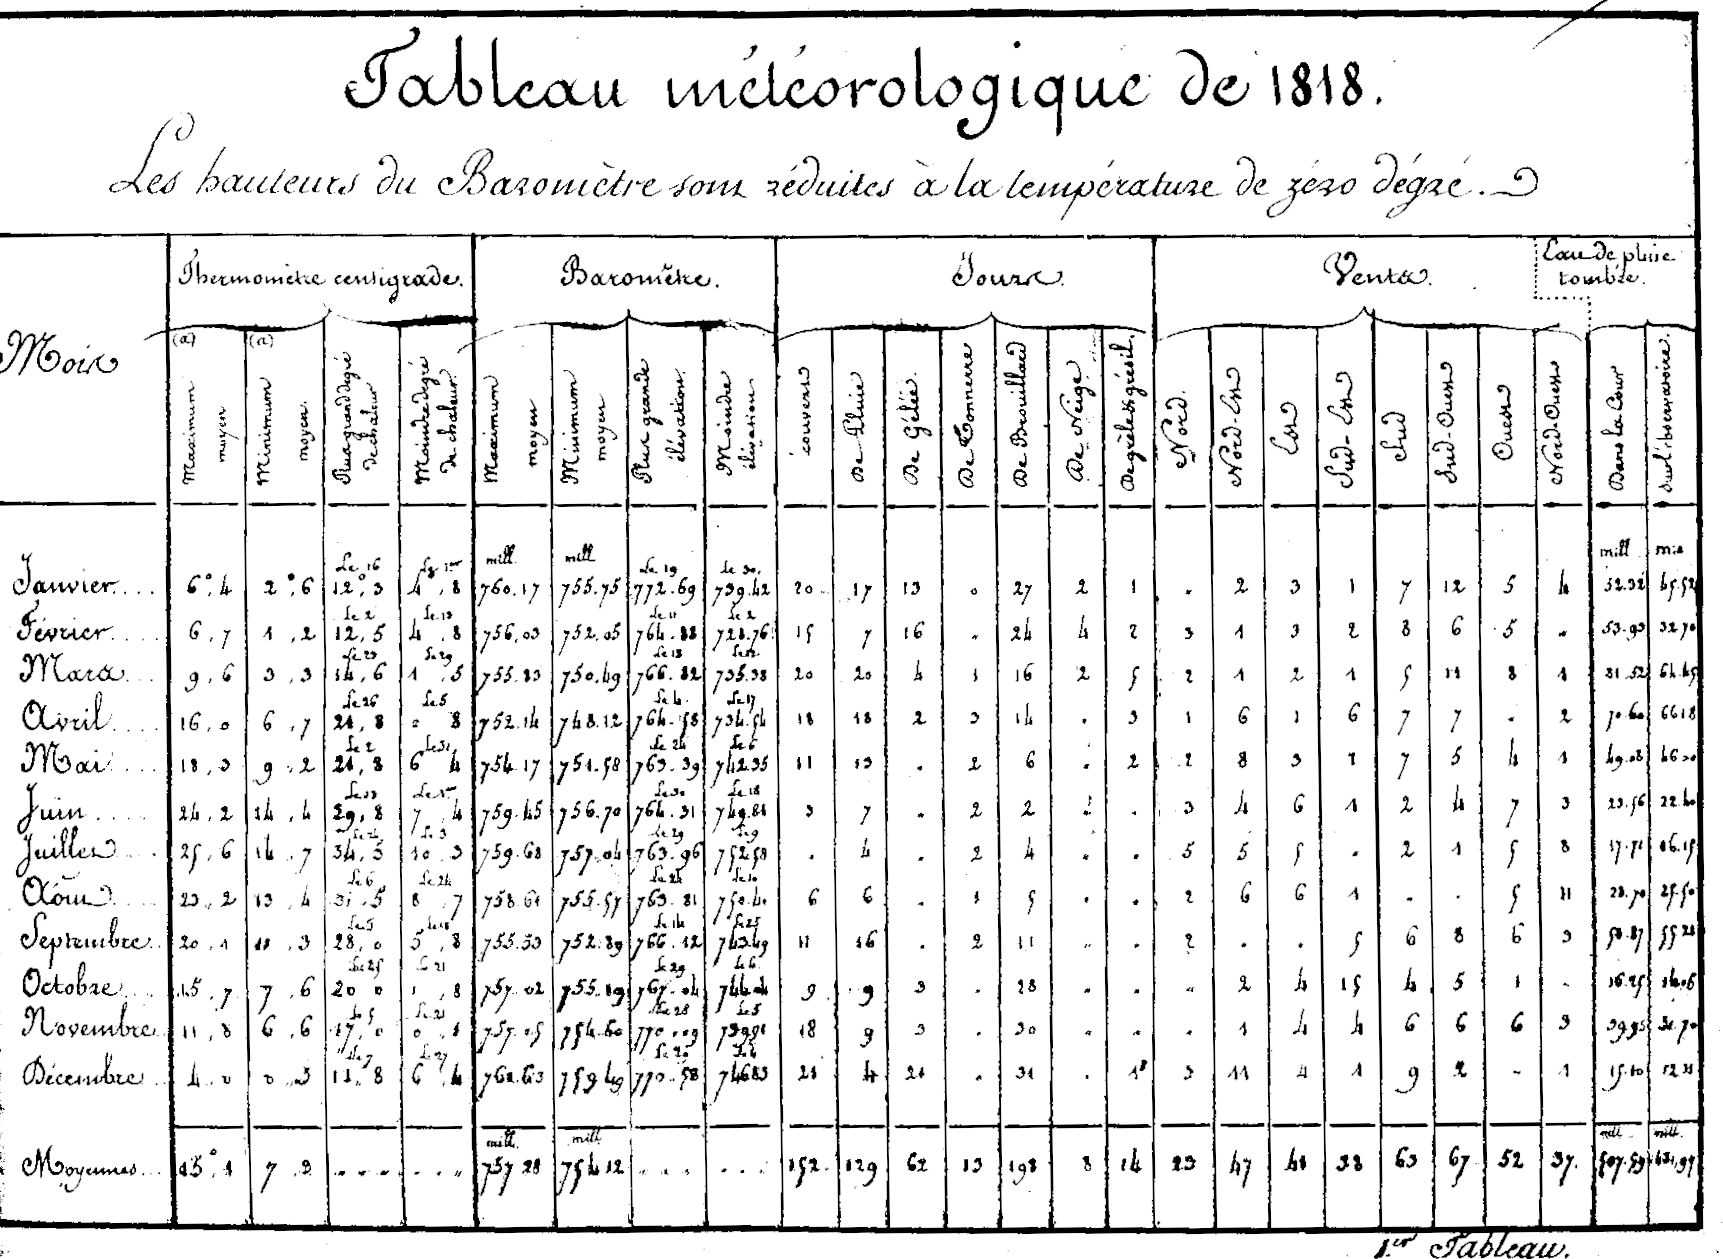 Tableau météorologique de 1818.
Les hauteurs du Baromètre sont réduites à la température de zéro dégré.
Mois
Thermomètre centigrade.
Baromètre.
Jours.
Vents.
Eau de pluie
tombée.
(a) (a)
Maximum moyen
Minimum moyen.
Plus grand degré de chaleur
Moindre degré de chaleur
Maximum moyen
Minimum moyen
Plus grande élévation.
Moindre élévation
couverts
De Pluie
De Gelée.
De Tonnerre
De Brouillard
De Neige.
De grêle et grésil.
Nord.
Nord-Est
Est
Sud-Est
Sud
Sud-Ouest
Ouest
Nord-Ouest
Dans la Cour
Sur l'observatoire.
Le 16 mill mill Le 19 Le 30. mill
Janvier 6°.4 2°.6 12°.3 4.8 760.17 755.75 772.69 739.42 20 17 13 . 27 2 1 . 2 3 1 7 12 5 4 52.32 45.52
Le 2 Le 13 Le 11 Le 2
Février 6,7 1,2 12,5 4.8 756.03 752.05 764.88 728.76 15 7 16 . 24 4 2 3 1 3 2 8 6 5 . 53.93 32.70
Le 23 Le 29 Le 18
Mars 9,6 3,3 14,6 1.5 755.83 750.49 766.82 735.38 20 20 4 1 16 2 5 2 1 2 1 5 11 8 1 81.52 64.45
Le 26 Le 5 Le 4 Le 17
Avril 16,0 6,7 21,8 0 8 752.14 748.12 764.58 734.54 18 18 2 3 14 . 3 1 6 1 6 7 7 . 2 70.60 66.18
Le 2 Le 31 Le 24 Le 6
Mai 18,3 9.2 21,8 6 4 754.17 751.58 763.39 742.35 11 13 . 2 6 . 2 2 8 3 1 7 5 4 1 49.08 46
Le 30 Le 18
Juin 24,2 14,4 29,8 7.4 759.45 756.70 764.31 749.81 3 7 . 2 2 . . 3 4 6 1 2 4 7 3 23.56 22.40
Le 24 Le 3 Le 29 Le 9
Juillet 25,6 14.7 34,5 10.3 759.68 757.04 763.96 752.58 . 4 . 2 4 . . 5 5 5 . 2 1 5 8 17.71 16.15
Le 6 Le 24 Le 24 Le 10
Août 23,2 13.4 31.5 8.7 758.61 755.57 763.81 750.40 6 6 . 1 5 . . 2 6 6 1 . . 5 11 28.70 25.50
Le 5 Le 18 Le 14 Le 25
Septembre 20,1 11.3 28,0 5.8 755.53 752.89 766.12 743.49 11 16 . 2 11 . . 2 . . 5 6 8 6 3 58.87 55.28
Le 25 Le 21 Le 29 Le 6
Octobre 15,7 7.6 20 0 1.8 757.02 755.19 767.04 744.04 9 9 3 . 28 . . . 2 4 15 4 5 1 . 16.25 14.06
Le 5 Le 21 Le 28 Le 5
Novembre 11,8 6.6 17,0 0.1 757.05 754.60 770.09 739.91 18 9 3 . 30 . . . 1 4 4 6 6 6 3 39.95 31.70
Le 7 Le 27 Le 20 Le 4
Décembre 4.0 0.3 11.8 6.4 761.63 759.49 770.58 746.83 21 4 21 . 31 . 1 3 11 4 1 9 2 . 1 15.10 12
mill. mill mill. mill.
Moyennes 15°.1 7.2 757 28 754 12 152. 129 62 13 198 8 14 23 47 41 38 63 67 52 37. 507.59
1.er Tableau.